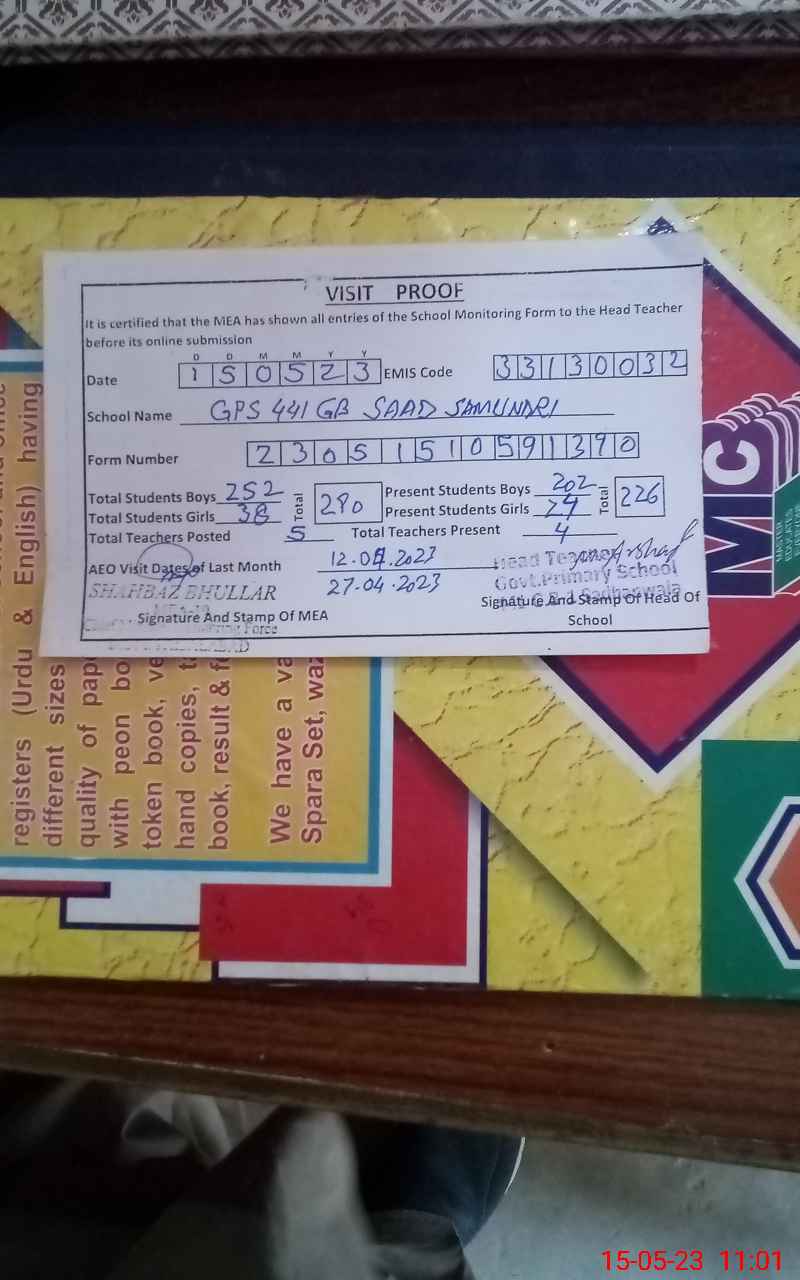 VISIT PROOF
It is certified that the MEA has shown all entries of the School Monitoring Form to the Head Teacher
before its online submission
D D M M Y Y
Date 150523 EMIS Code 33130032
School Name GPS 441 GB SAAD SAMUNDRI
Form Number 23051510591390
Total Students Boys 252 Total 280 Present Students Boys 202 Total 226
Total Students Girls 38 Present Students Girls 24
Total Teachers Posted 5 Total Teachers Present 4
AEO Visit Dates of Last Month 12.04.2023
27-04-2023
SHAHBAZ BHULLAR
Signature And Stamp Of MEA
Force
Head Teacher
Govt.Primary School
Signature And Stamp Of Head Of
School
registers (Urdu & English) having
different sizes
quality of
with peon
token book,
hand copies,
book, result &
We have a
Spara Set,
MC
MASTER
15-05-23 11:01